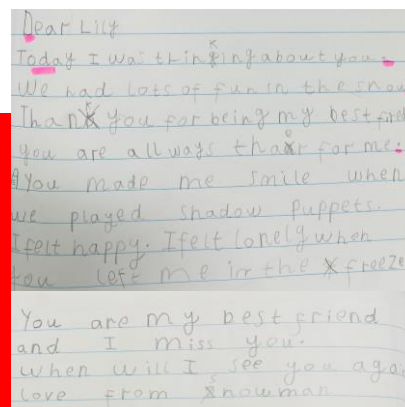 Dear Lily
Today I was thinking about you.
We had lots of fun in the snow
Thank you for being my best
you are all ways thaer for me.
You made me smile when
we played shadow puppets.
I felt happy. I felt lonely when
you left me in the freeze
You are my best friend
and I miss you.
when will I see you agai
love from snowman